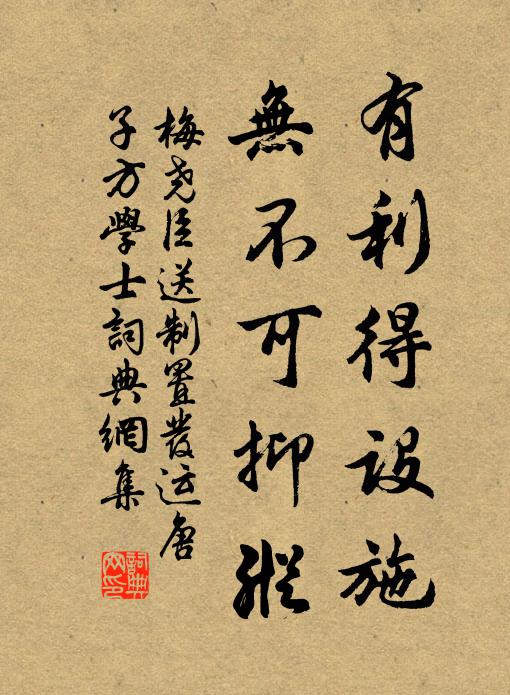 有利得設施
無不可抑縱
梅尧臣送制置發运唐
子方學士詞典網集
詞典网印